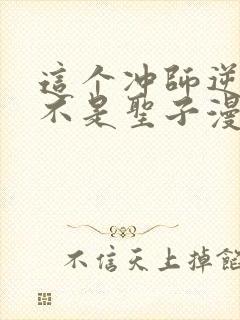 這个冲師逆
不是聖子漫
不信天上掉餡